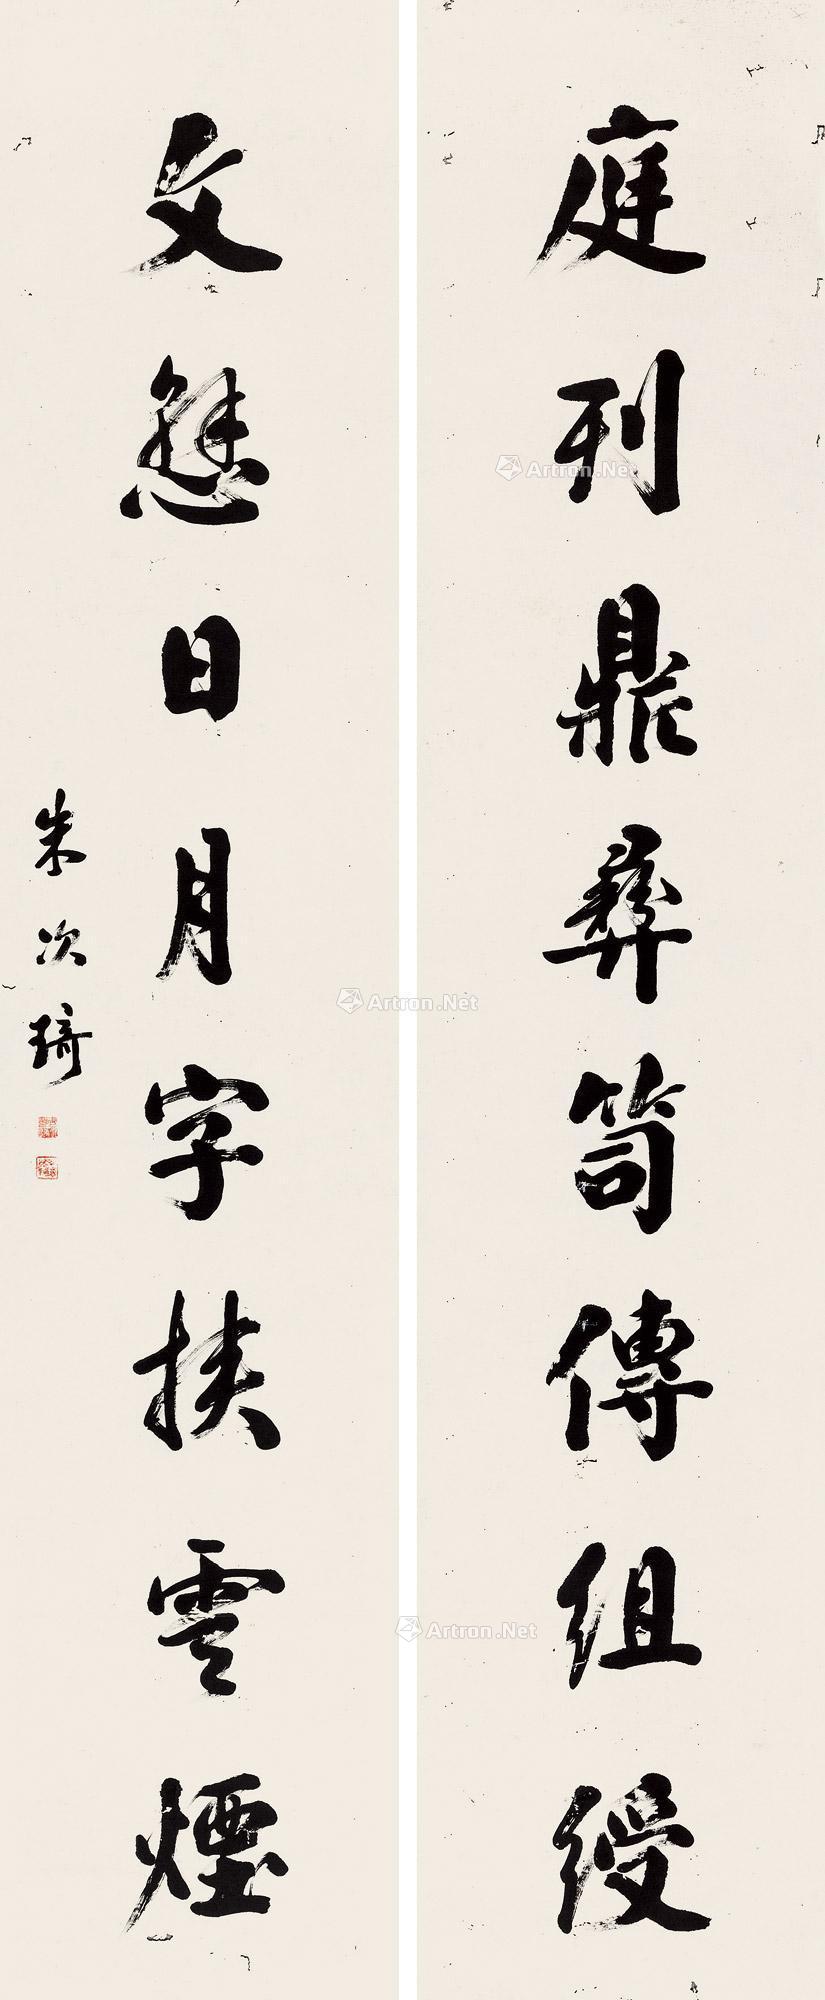 庭列鼎彝笥傳組綬
文懸日月字挾雲煙
朱次琦
Artron.Net
Artron.Net
Artron.Net